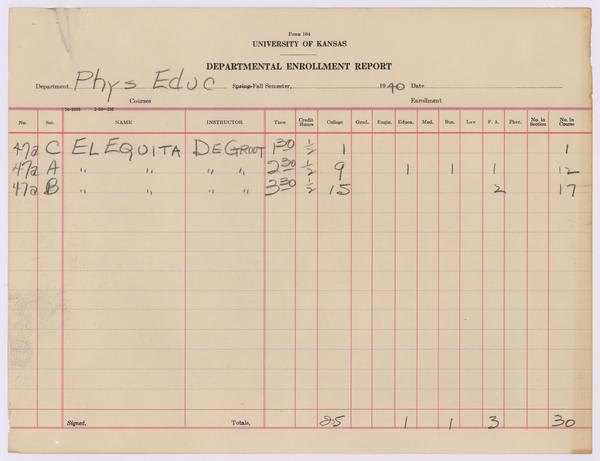 Form 104
UNIVERSITY OF KANSAS
DEPARTMENTAL ENROLLMENT REPORT
Department Phys Educ Spring-Fall Semester, 1940 Date
Courses Enrollment
No. Sec. NAME INSTRUCTOR Time Credit Hours College Grad. Engin. Educa. Med. Bus. Law F. A. Phar. No. in Section No. in Course
47a C EL EQUITA DEGROOT 1 30 1/2 1 1
47a A " " " " 2 30 1/2 9 1 1 1 1 12
47a B " " " " 3 30 1/2 15 2 17
Signed, Totals, 25 1 1 3 30